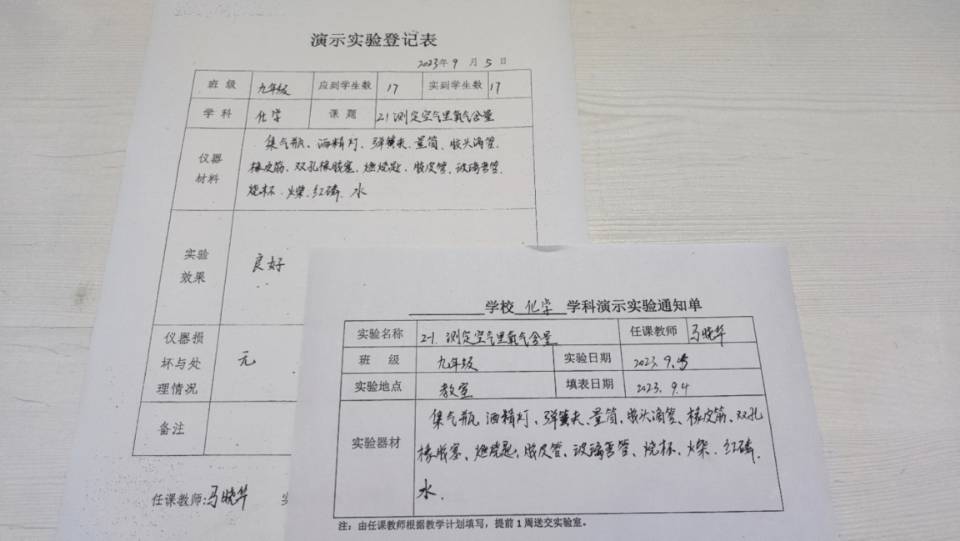 演示实验登记表
2023年 9 月 5 日
班 级 九年级 应到学生数 17 实到学生数 17
学 科 化学 课 题 2.1测定空气里氧气含量
仪器材料 集气瓶、酒精灯、弹簧夹、量筒、胶头滴管、
橡皮筋、双孔橡胶塞、燃烧匙、胶皮管、玻璃弯管、
烧杯、火柴、红磷、水
实验效果 良好
仪器损坏与处理情况 无
备注
任课教师:马晓华
学校 化学 学科演示实验通知单
实验名称 2-1.测定空气里氧气含量 任课教师 马晓华
班 级 九年级 实验日期 2023.9.5
实验地点 教室 填表日期 2023.9.4
实验器材 集气瓶、酒精灯、弹簧夹、量筒、胶头滴管、橡皮筋、双孔
橡胶塞、燃烧匙、胶皮管、玻璃弯管、烧杯、火柴、红磷、
水.
注:由任课教师根据教学计划填写,提前1周送交实验室。